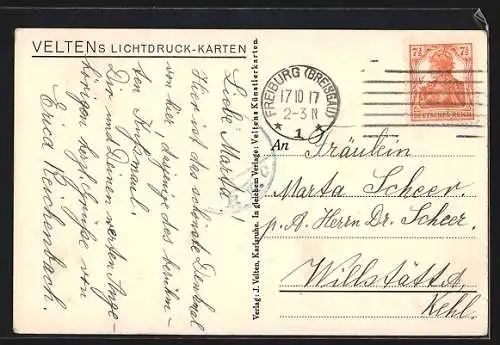 VELTENS LICHTDRUCK-KARTEN
Liebe Marta!
Hier ist das schönste Denkmal
von hier, dasjenige des berühm-
ten Kußmaul.
Dir und Deinen werten Ange-
hörigen herzl. Grüße von
Erica Reichenbach.
Verlag: J. Velten, Karlsruhe. In gleichem Verlage: Veltens Künstlerkarten.
FREIBURG (BREISGAU)
17 10 17
2-3 N
* 1 *
7½ 7½
DEUTSCHES REICH
An Fräulein
Marta Scheer.
p. A. Herrn Dr. Scheer.
Willstätt,
Kehl.